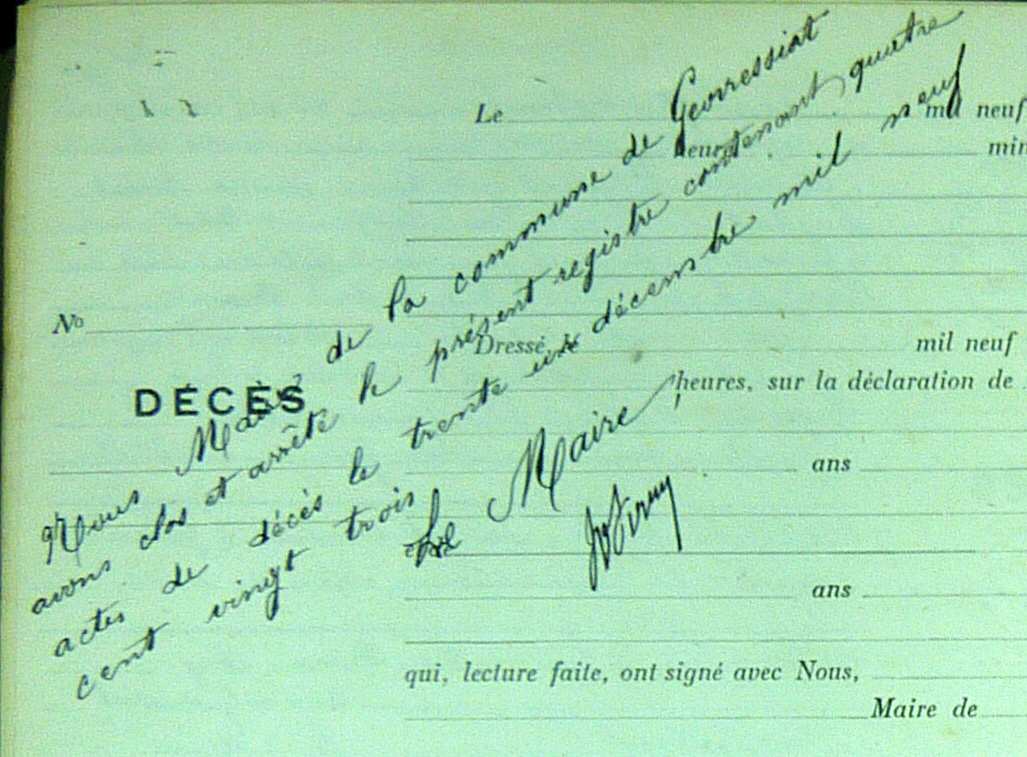 Le mil neuf
heures min
No
Dressé, le mil neuf
DÉCÈS
heures, sur la déclaration de
ans
ans
qui, lecture faite, ont signé avec Nous,
Maire de
Nous Maire de la commune de Géovressiat
avons clos et arrêté le présent registre contenant quatre
actes de décès le trente un décembre mil neuf
cent vingt trois
Le Maire,